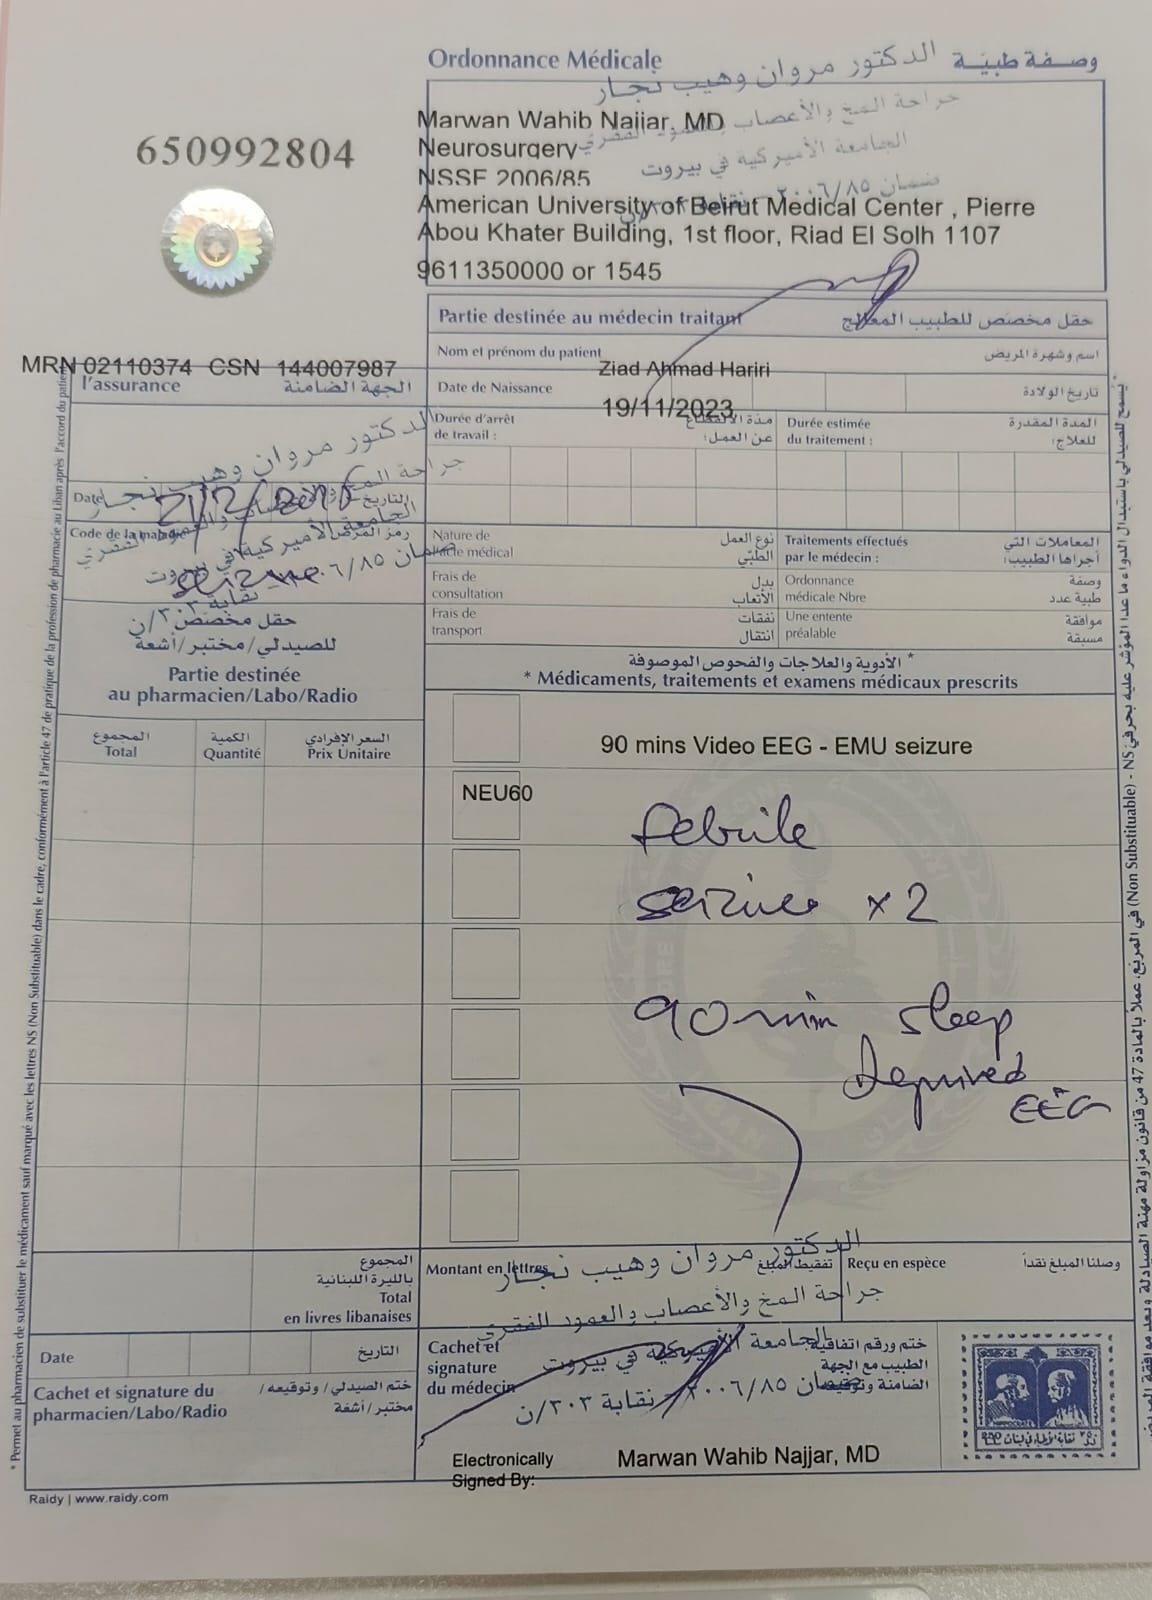 Ordonnance Médicale
وصفة طبيّة
الدكتور مروان وهيب نجار
جراحة المخ والأعصاب والعمود الفقري
الجامعة الأميركية في بيروت
ضمان ٢٠٠٦/٨٥
Marwan Wahib Najjar, MD
Neurosurgery
NSSF 2006/85
American University of Beirut Medical Center , Pierre
Abou Khater Building, 1st floor, Riad El Solh 1107
9611350000 or 1545
650992804
Partie destinée au médecin traitant
حقل مخصّص للطبيب المعالج
MRN 02110374 CSN 144007987
Nom et prénom du patient
Ziad Ahmad Hariri
اسم وشهرة المريض
l'assurance
الجهة الضامنة
Date de Naissance
19/11/2023
تاريخ الولادة
Durée d'arrêt
de travail :
عن العمل:
Durée estimée
du traitement :
المدة المقدرة
للعلاج:
الدكتور مروان وهيب نجار
جراحة المخ والأعصاب والعمود الفقري
الجامعة الأميركية في بيروت
ضمان ٢٠٠٦/٨٥
نقابة ٣٠٣/ن
Date
التاريخ
Code de la maladie
رمز المرض
seizure
Nature de
l'acte médical
نوع العمل
الطبّي
Traitements effectués
par le médecin :
المعاملات التي
أجراها الطبيب:
Frais de
consultation
بدل
الأتعاب
Ordonnance
médicale Nbre
وصفة
طبية عدد
Frais de
transport
نفقات
انتقال
Une entente
préalable
موافقة
مسبقة
حقل مخصّص
للصيدلي/مختبر/أشعة
Partie destinée
au pharmacien/Labo/Radio
* الأدوية والعلاجات والفحوص الموصوفة
* Médicaments, traitements et examens médicaux prescrits
المجموع
Total
الكمية
Quantité
السعر الإفرادي
Prix Unitaire
90 mins Video EEG - EMU seizure
NEU60
febrile
seizures x 2
90 min sleep
Deprived
EEG
المجموع
بالليرة اللبنانية
Total
en livres libanaises
Montant en lettres
تفقيط المبلغ
Reçu en espèce
وصلنا المبلغ نقداً
الدكتور مروان وهيب نجار
جراحة المخ والأعصاب والعمود الفقري
الجامعة الأميركية في بيروت
ضمان ٢٠٠٦/٨٥ نقابة ٣٠٣/ن
Date
التاريخ
Cachet et signature du
pharmacien/Labo/Radio
ختم الصيدلي / وتوقيعه /
مختبر/أشعة
Cachet et
signature
du médecin
ختم ورقم اتفاقية
الطبيب مع الجهة
الضامنة وتوقيعه
Electronically
Signed By:
Marwan Wahib Najjar, MD
Raidy | www.raidy.com
* Permet au pharmacien de substituer le médicament sauf marqué avec les lettres NS (Non Substituable) dans le cadre, conformément à l'article 47 de pratique de la profession de pharmacie au Liban après l'accord du patient
* يُسمح للصيدلي باستبدال الدواء ما عدا المؤشر عليه بحرفي NS - (Non Substituable) في المربع، عملاً بالمادة 47 من قانون مزاولة مهنة الصيادلة وبعد موافقة المريض